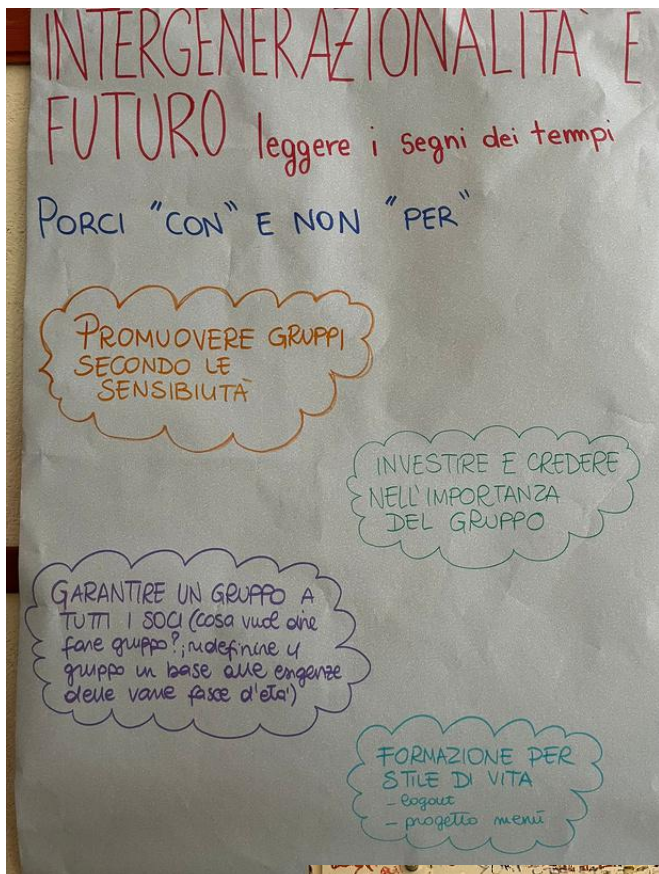 INTERGENERAZIONALITÀ E
FUTURO leggere i segni dei tempi
PORCI "CON" E NON "PER"
PROMUOVERE GRUPPI
SECONDO LE
SENSIBILITÀ
INVESTIRE E CREDERE
NELL'IMPORTANZA
DEL GRUPPO
GARANTIRE UN GRUPPO A
TUTTI I SOCI (cosa vuol dire
fare gruppo?; ridefinire il
gruppo in base alle esigenze
delle varie fasce d'età)
FORMAZIONE PER
STILE DI VITA
- logout
- progetto menù